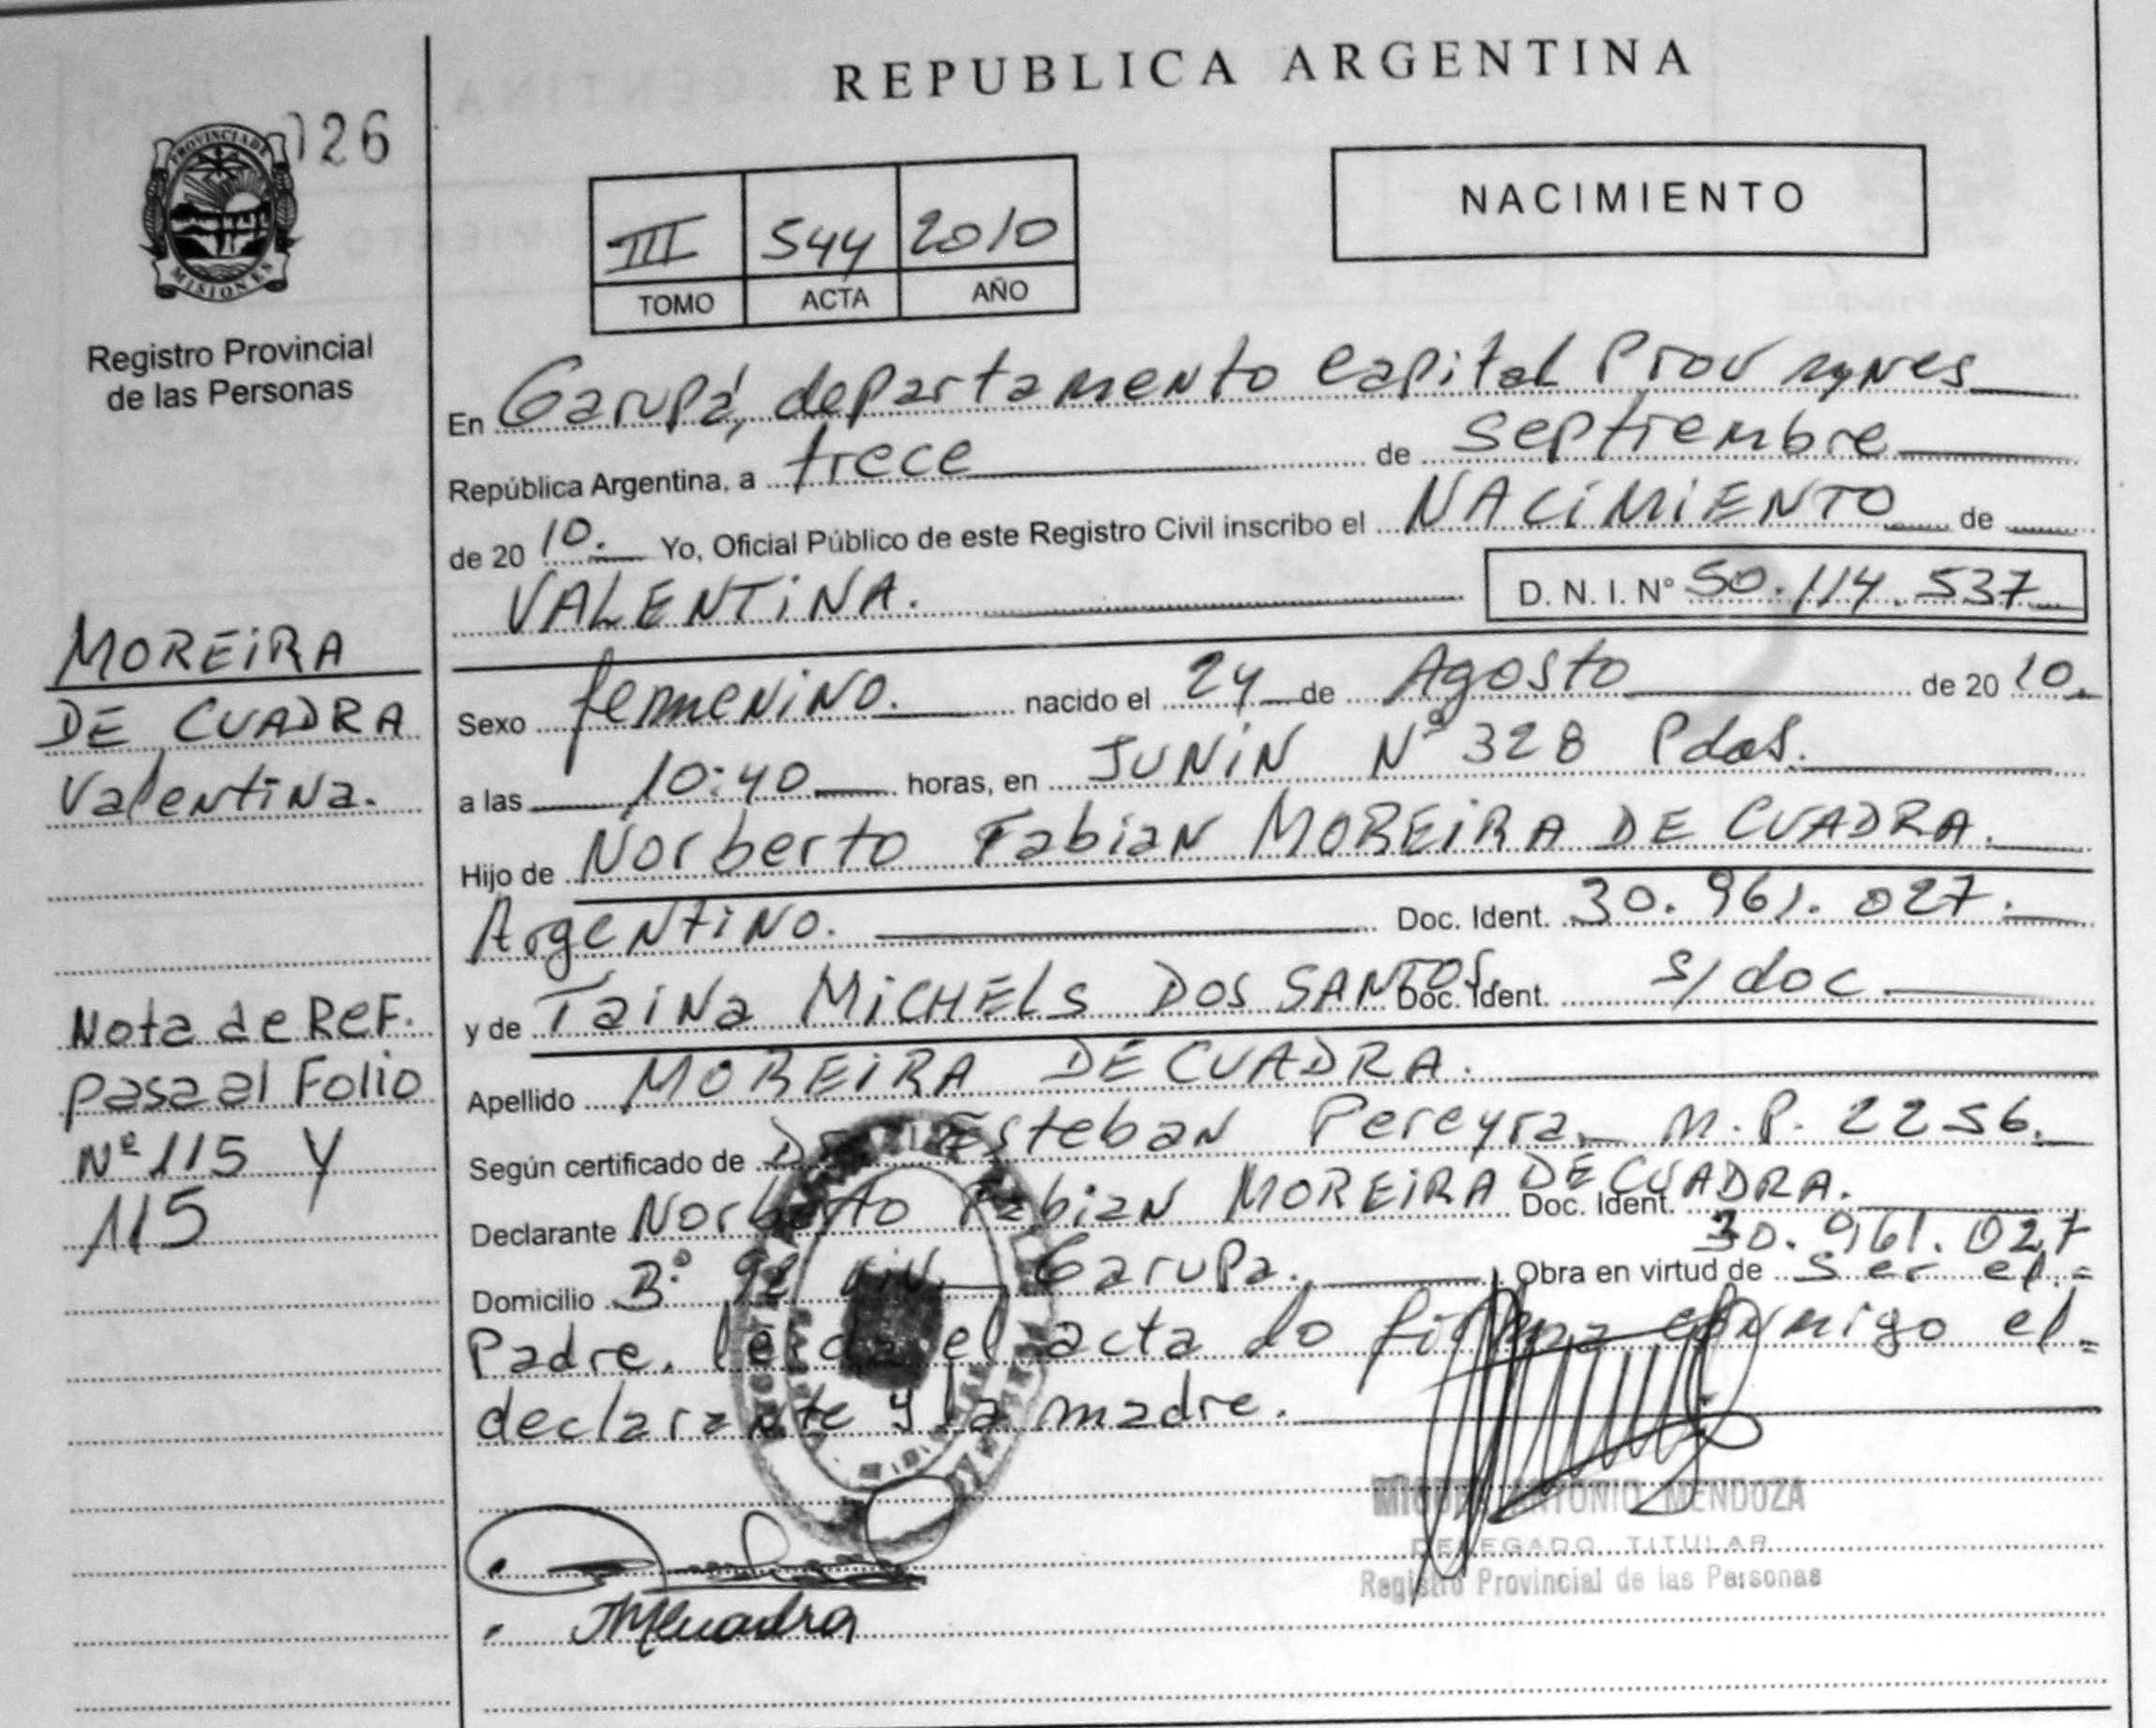 REPUBLICA ARGENTINA
126
PROVINCIA DE
MISIONES
Registro Provincial
de las Personas
III 544 2010
TOMO ACTA AÑO
NACIMIENTO
En Garupá, departamento capital Prov
República Argentina, a trece de septiembre
de 2010. Yo, Oficial Público de este Registro Civil inscribo el NACIMIENTO de
VALENTINA. D. N. I. Nº 50.114.537
MOREIRA
DE CUADRA
Valentina.
Sexo femenino. nacido el 24 de Agosto de 2010.
a las 10:40 horas, en JUNIN Nº 328 Pdas.
Hijo de Norberto Fabian MOREIRA DE CUADRA.
Argentino. Doc. Ident. 30.961.027.
y de Taina MICHELS DOS SANTOS. Doc. Ident. s/doc.
Nota de Ref.
pasa al Folio
Nº 115 y
115
Apellido MOREIRA DE CUADRA.
Según certificado de Esteban Pereyra M.P. 2256.
Declarante Norberto Fabian MOREIRA DE CUADRA. Doc. Ident.
30.961.027
Domicilio Bº 92 viv. Garupa. Obra en virtud de ser el=
Padre. leida el acta lo firma conmigo el=
declarante y la madre.
MIGUEL ANTONIO MENDOZA
DELEGADO TITULAR
Registro Provincial de las Personas